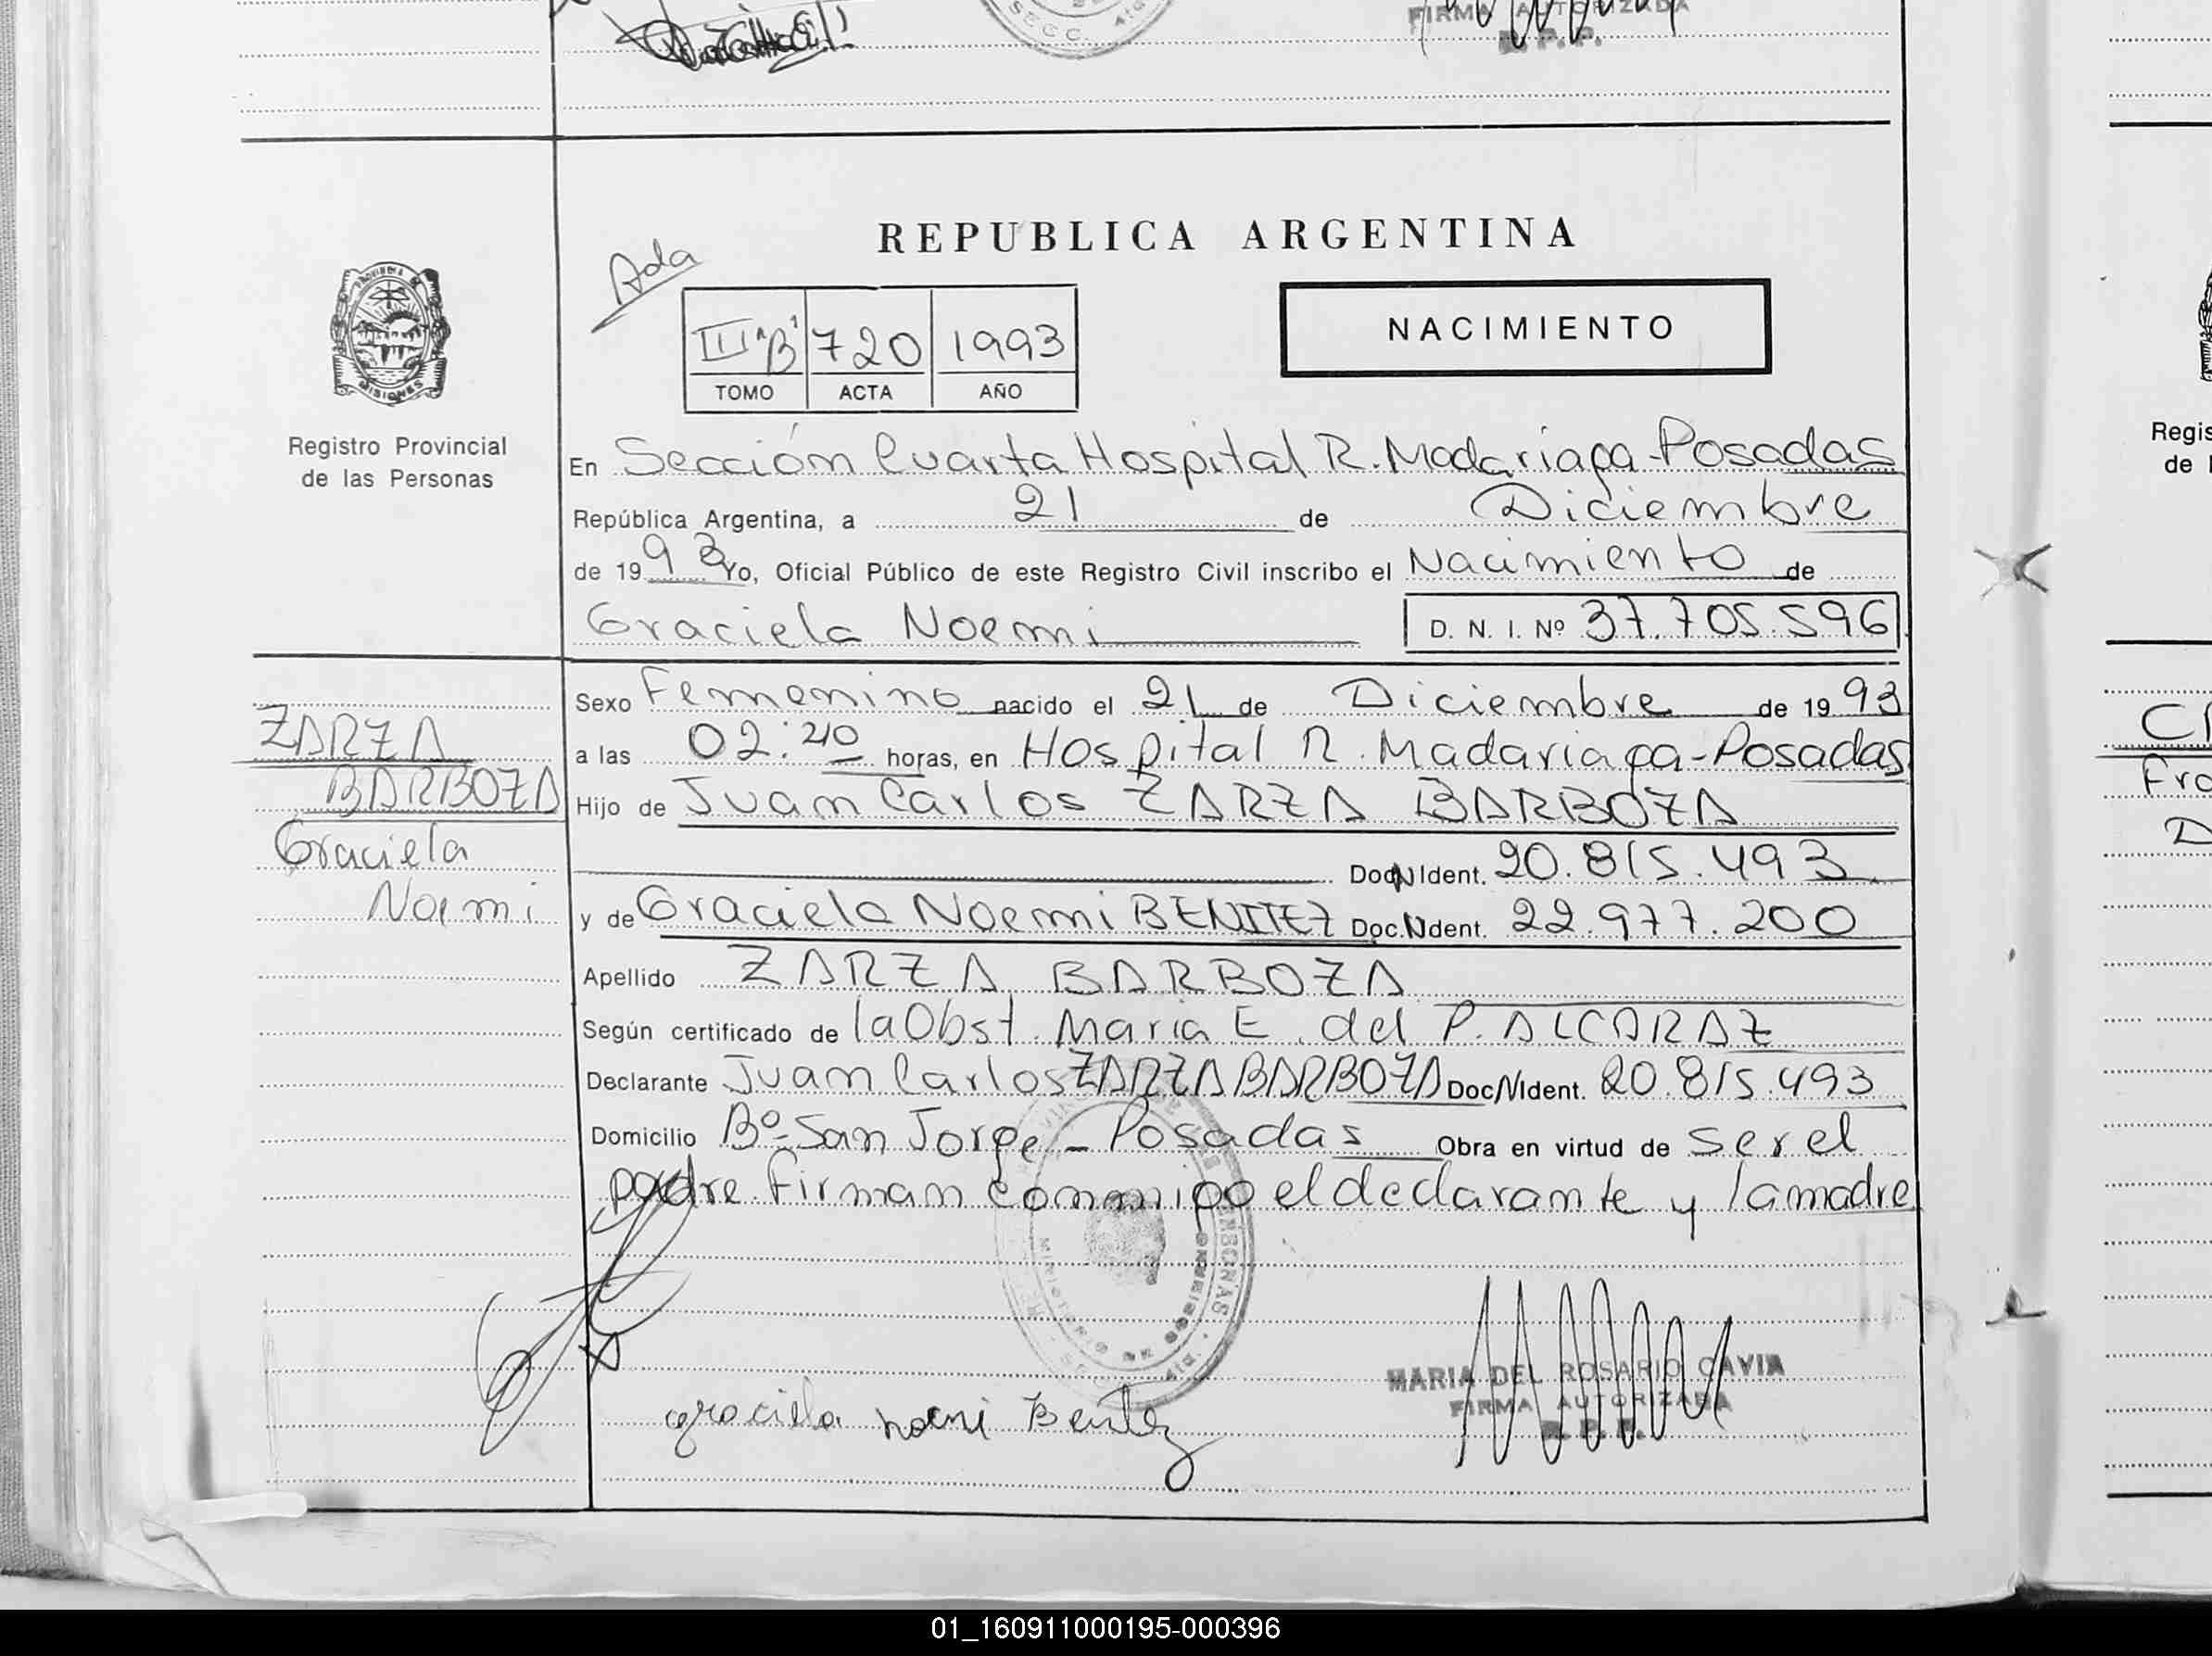 FIRMA AUTORIZADA
R. P. P.
REPUBLICA ARGENTINA
Ada
III "B" 720 1993
TOMO ACTA AÑO
NACIMIENTO
PROVINCIA DE
MISIONES
Registro Provincial
de las Personas
En Sección Cuarta Hospital R. Madariaga - Posadas
República Argentina, a 21 de Diciembre
de 1993 Yo, Oficial Público de este Registro Civil inscribo el Nacimiento de
Graciela Noemi D. N. I. Nº 37.705.596
Sexo Femenino nacido el 21 de Diciembre de 1993
a las 02:40 horas, en Hospital R. Madariaga - Posadas
Hijo de Juan Carlos ZARZA BARBOZA
Doc. N Ident. 20.815.493
y de Graciela Noemi BENITEZ Doc. N Ident. 22.977.200
Apellido ZARZA BARBOZA
Según certificado de la Obst. Maria E. del P. ALCARAZ
Declarante Juan Carlos ZARZA BARBOZA Doc. N Ident. 20.815.493
Domicilio Bº San Jorge - Posadas Obra en virtud de ser el
padre. Firman conmigo el declarante y la madre
ZARZA
BARBOZA
Graciela
Noemi
graciela noemi Benitez
MARIA DEL ROSARIO CAVIA
FIRMA AUTORIZADA
R. P. P.
Regis
de l
Fra
01_160911000195-000396